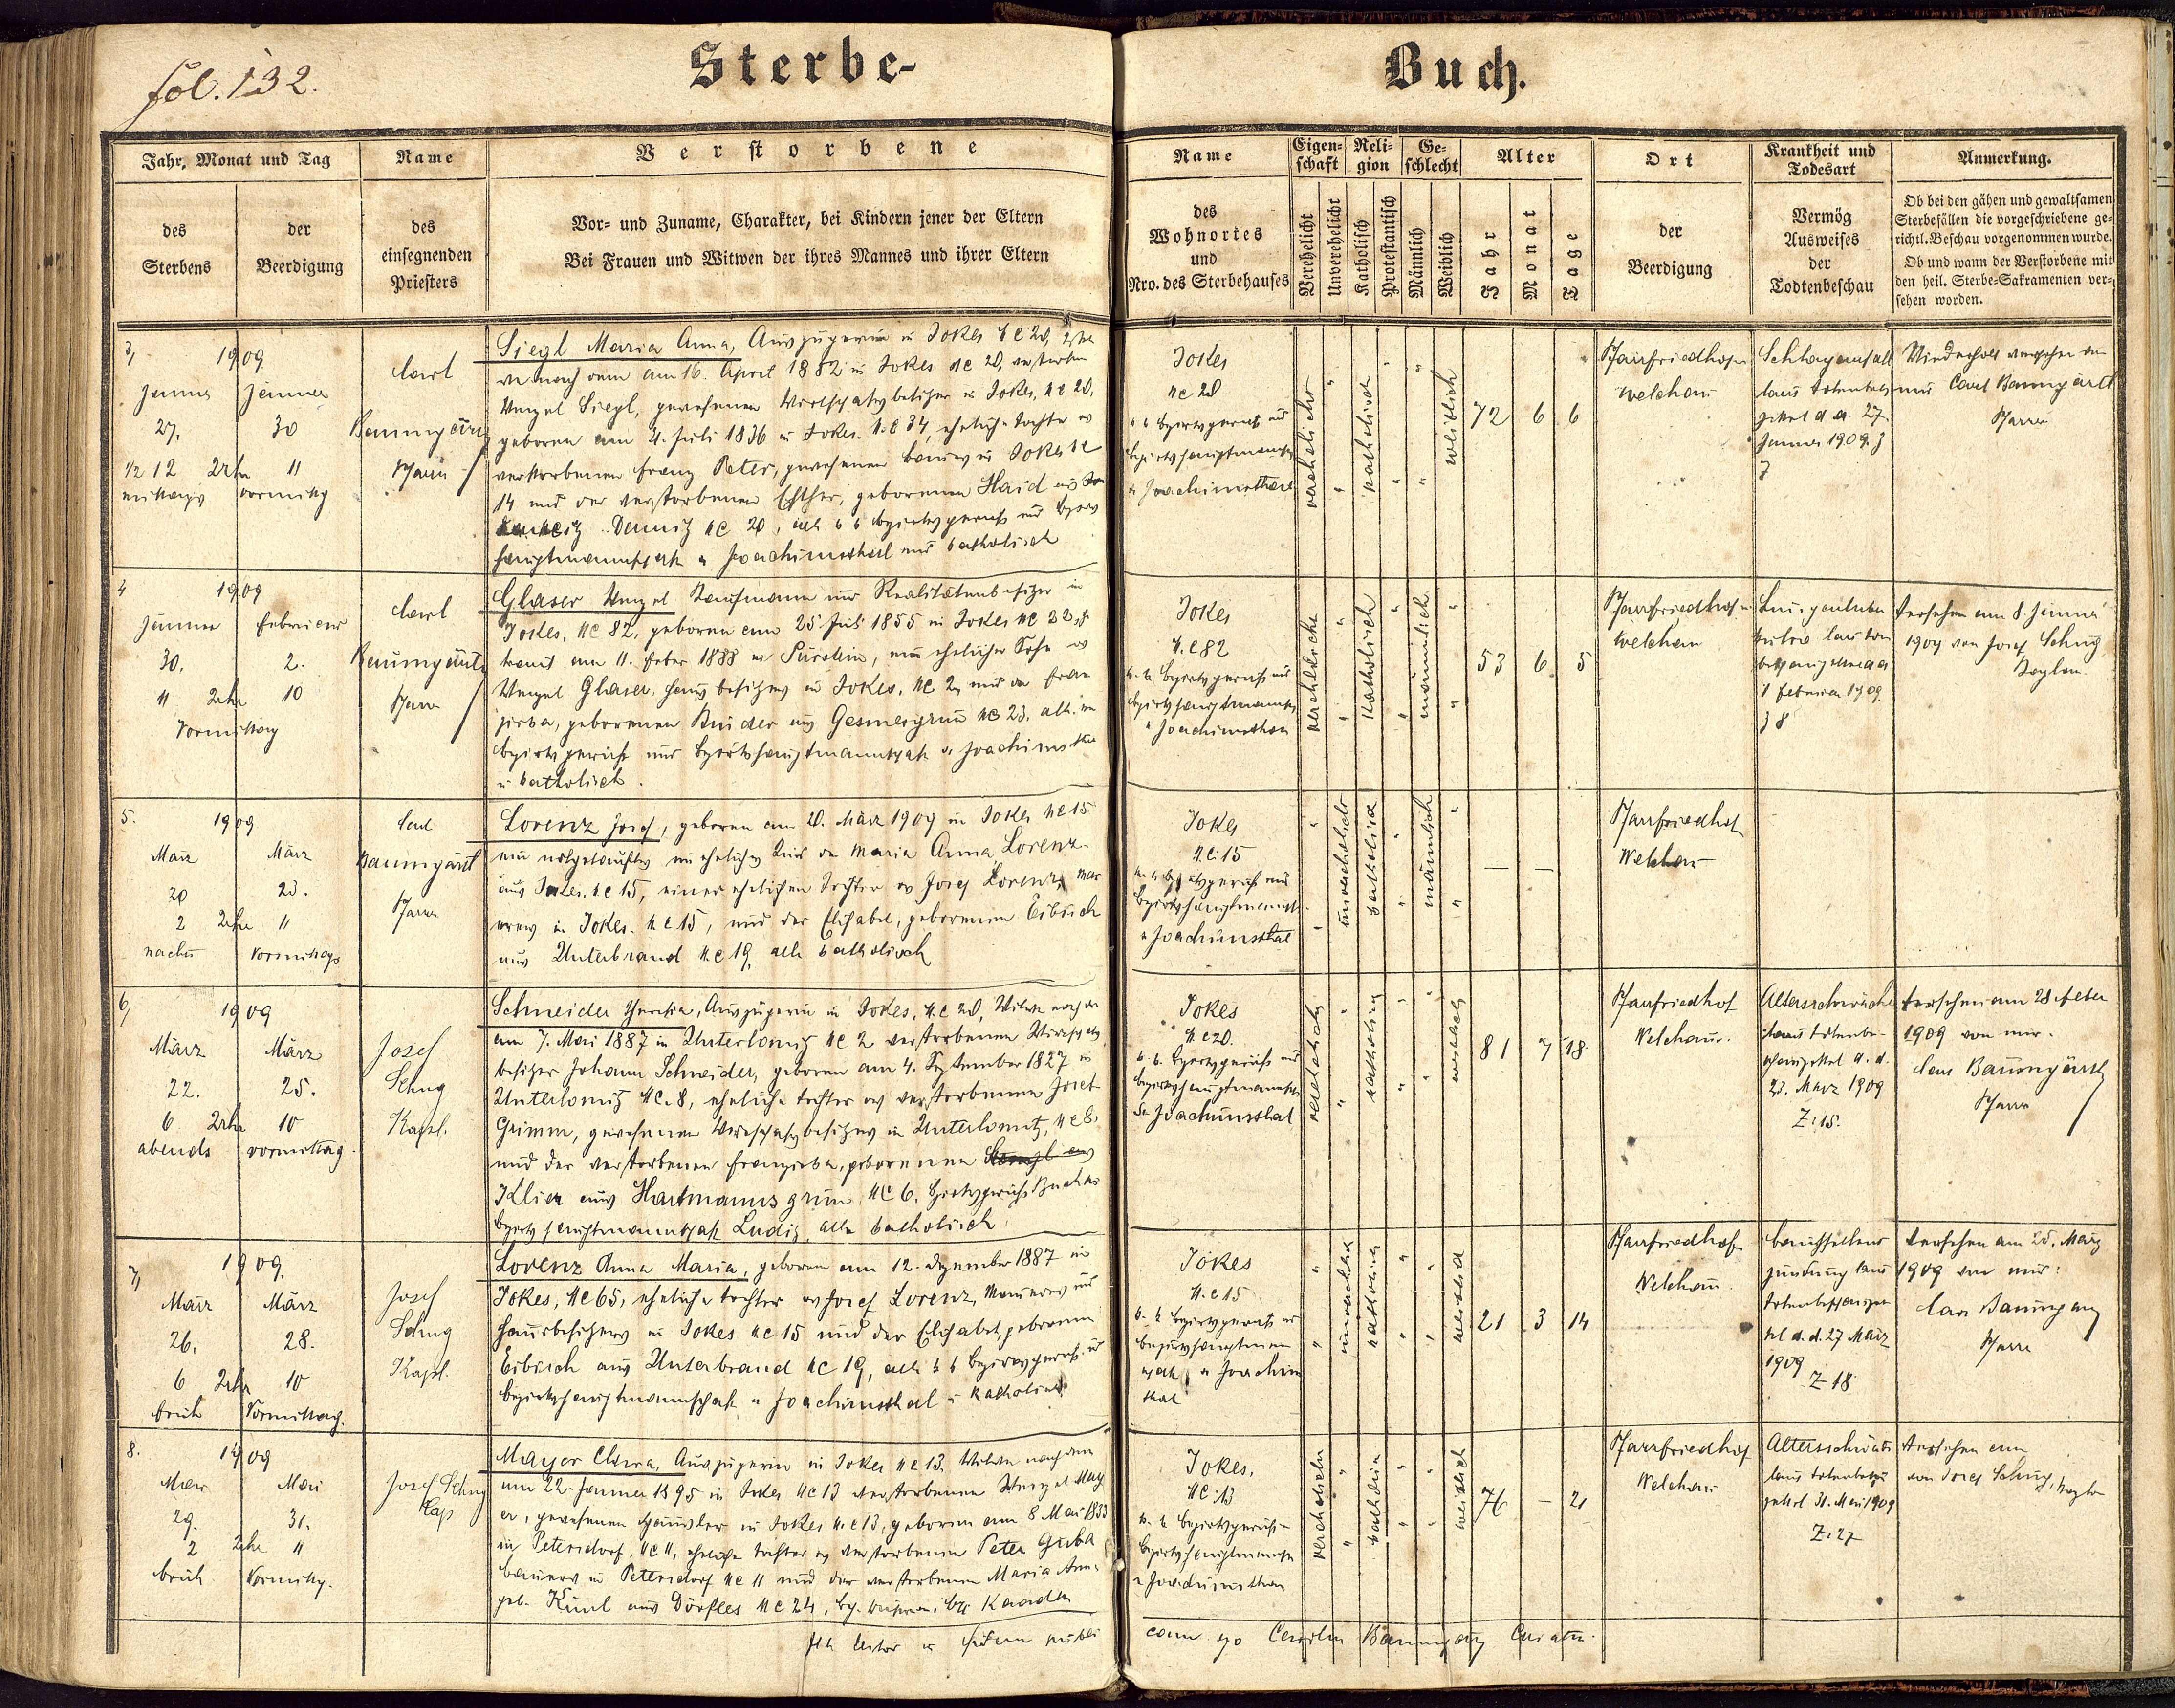 fol. 132.
Sterbe-
Buch.
Jahr, Monat und Tag
des Sterbens
der Beerdigung
Name
des einsegnenden Priesters
Verstorbene
Vor- und Zuname, Charakter, bei Kindern jener der Eltern
Bei Frauen und Witwen der ihres Mannes und ihrer Eltern
Name
des Wohnortes und Nro. des Sterbehauses
Eigenschaft
Verehelicht
Unverehelicht
Religion
Katholisch
Protestantisch
Geschlecht
Männlich
Weiblich
Alter
Jahr
Monat
Tage
Ort
der Beerdigung
Krankheit und Todesart
Vermög Ausweises der Todtenbeschau
Anmerkung.
Ob bei den gähen und gewaltsamen
Sterbefällen die vorgeschriebene ge-
richtl. Beschau vorgenommen wurde.
Ob und wann der Verstorbene mit
den heil. Sterbe-Sakramenten ver-
sehen worden.
3,
1909
Jänner
27.
1/2 12 Uhr
mittags
Jänner
30
11
vormittg
Carl
Baumgärtl
Pfarrer
Siegl Maria Anna, Auszügerin in Jokes NC 20,
nach dem am 16. April 1882 in Jokes NC 20, verstorben
Wenzel Siegl, gewesenen Wirtschaftsbesitzer in Jokes, NC 20,
geboren am 21. Juli 1836 in Jokes. N.C 34, eheliche Tochter des
verstorbenen Franz Peter, gewesenen Bauers in Jokes NC
14 und der verstorbenen Esther, geborenen Haid aus
NC 20, alle k k Bezirksgericht und Bezirks
hauptmannschaft in Joachimsthal und katholisch
Jokes
NC 20
k k Bezirksgericht und
Bezirkshauptmannsch
in Joachimsthal
verehelicht
katholisch
weiblich
72
6
6
Pfarrfriedhof in
Welchau
Schlaganfall
laut Totenbesch
zettel d. d. 27.
Jänner 1909. Z
3
Wiederholt versehen von
mir Carl Baumgärtl
Pfarrer
4
1909
Jänner
30.
11 Uhr
Vormittag
Februar
2.
10
Carl
Baumgärtl
Pfarrer
Glaser Wenzel Kaufmann und Realitätenbesitzer in
Jokes, NC 82, geboren am 25. Juli 1855 in Jokes NC 22,
traut am 11. Feber 1888 in Pürstein, ein ehelicher Sohn des
Wenzel Glaser, Hausbesitzers in Jokes, NC 2, und der Fran
ziska, geborenen Binder aus Gesmesgrün NC 23, alle im
Bezirksgericht und Bezirkshauptmannschaft in Joachimsthal
u katholisch.
Jokes
N.C 82
k. k. Bezirksgericht und
Bezirkshauptmannsch
in Joachimsthal
verehelicht
katholisch
männlich
53
6
5
Pfarrfriedhof in
Welchau
Lungentuber
kulose laut Toten
beschauzettel d d
1 Februar 1909
Z 8
Versehen am 8. Jänner
1909 von Josef Schug
Kaplan
5.
1909
März
20
2 Uhr
nachm
März
23.
11
Vormittags
Carl
Baumgärtl
Pfarrer
Lorenz Josef, geboren am 20. März 1909 in Jokes NC 15
ein notgetauftes unehelichs Kind der Maria Anna Lorenz
aus Jokes. NC 15, einer ehelichen Tochter des Josef Lorenz, Mau
rers in Jokes. N C 15, und der Elisabet, geborenen Eibisch
aus Unterbrand N.C 19, alle katholisch
Jokes
N.C. 15
Bezirkshauptmannsch.
in Joachimsthal
unverehelicht
katholisch
männlich
—
—
Pfarrfriedhof
Welchau
6,
1909
März
22.
6 Uhr
abends
März
25.
10
vormittag.
Josef
Schug
Kapl.
Schneider Theresia, Auszügerin in Jokes, N.C 20, Witwe nach dem
am 7. Mai 1887 in Unterlomitz NC 2 verstorbenen Wirtschafts
besitzer Johann Schneider, geboren am 4. September 1827 in
Unterlomitz NC. 8, eheliche Tochter des verstorbenen Josef
Grimm, gewesenen Wirtschaftsbesitzers in Unterlomitz, NC 8.
und der verstorbenen Franziska, geborenen
Klier aus Hartmannsgrün NC 6. Bezirksgericht Buchau
Bezirkshauptmannschaft Luditz, alle katholisch
Jokes
N C 20.
k. k. Bezirksgericht und
Bezirkshauptmannsch
in Joachimsthal
verehelicht
katholisch
weiblich
81
7
18
Pfarrfriedhof
Welchau.
Altersschwäche
laut Totenbe-
schauzettel d. d.
23. März 1909
Z: 15.
Versehen am 28 Feber
1909 von mir.
Carl Baumgärtl
Pfarrer
7,
1909.
März
26.
6 Uhr
früh
März
28.
10
Vormittag.
Josef
Schug
Kapl.
Lorenz Anna Maria, geboren am 12. Dezember 1887 in
Jokes, NC 65, eheliche Tochter des Josef Lorenz, Maurers und
Hausbesitzers in Jokes NC 15 und der Elisabet, geborenen
Eibisch aus Unterbrand NC 19, alle k k Bezirksgericht u
Bezirkshauptmannschaft in Joachimsthal u katholisch
Jokes
N.C 15
k. k. Bezirksgericht u
Bezirkshauptmann
schaft in Joachims
thal
unverehelicht
katholisch
weiblich
21
3
14
Pfarrfriedhof
Welchau.
Bauchfellent
zündung laut
Totenbeschauzet
tel d. d. 27 März
1909
Z 18
Versehen am 25. März
1909 von mir:
Carl Baumgärtl
Pfarrer
8.
1909
Mai
29.
2 Uhr
früh
Mai
31.
11
Vormittg.
Josef Schug
Kap
Mayer Clara, Auszügerin in Jokes NC 13, Witwe nach dem
am 22. Jänner 1895 in Jokes NC 13 verstorbenen Wenzel May
er, gewesenen Häusler in Jokes N.C 13, geboren am 8 Mai 1833
in Petersdorf, NC 11, eheliche Tochter des verstorbenen Peter Guba
Bauers in Petersdorf NC 11 und der verstorbenen Maria Anna
geb. Künl aus Dörfles NC 24, Kaaden
Jokes.
NC: 13
k. k. Bezirksgericht
Bezirkshauptmannsch
in Joachimsthal
verehelicht
katholisch
weiblich
76
—
21
Pfarrfriedhof
Welchau
Altersschwäche
laut Totenbeschau
zettel 31. Mai 1909
Z: 27
Versehen am
von Josef Schug, Kaplan